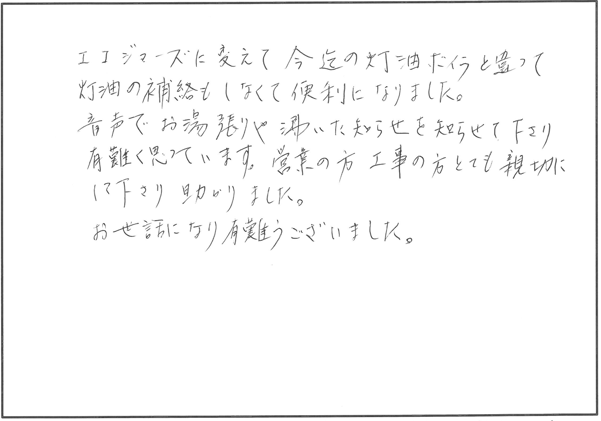 エコジマーズに変えて今迄の灯油ボイラと違って
灯油の補給もしなくて便利になりました。
音声でお湯張りや沸いた知らせを知らせて下さり
有難く思っています。営業の方工事の方とても親切に
して下さり助かりました。
お世話になり有難うございました。